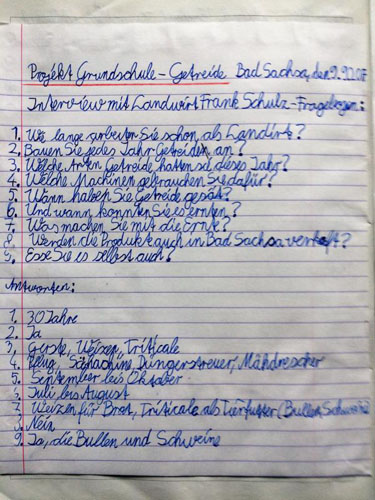 Projekt Grundschule - Getreide Bad Sachsa, den 9.
Interview mit Landwirt Frank Schulz - Fragebogen:
1. Wie lange arbeiten Sie schon als Landirt?
2. Bauen Sie jedes Jahr Getreiden an?
3. Welche Arten Getreide hatten sd dieses Jahr?
4. Welche Machinen gebrauchen Sie dafür?
5. Wann haben Sie Getreide gesät?
6. Und wann konnten Sie es ernten?
7. Was machen Sie mit die Ernte?
8. Werden die Produkte auch in Bad Sachsa verkaft?
9. Esse Sie es selbst auch?
Antworten:
1. 30 Jahre
2. Ja
3. Gerste, Weizen, Triticale
4. Pflug, Düngerstreuer, Mähdrescher
5. September bis Oktober
Juli bis August
7. Weizen für Brot, Triticale als Tierfutter (Bullen, Schweine)
Nein
9. Ja, die Bullen und Schweine